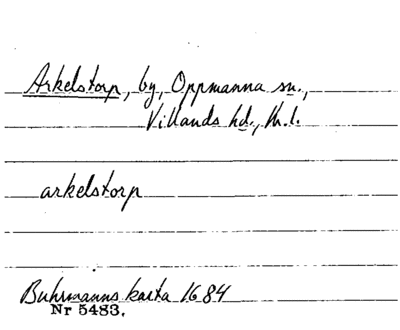 Arkelstorp, by, Oppmanna sn.,
Villands hd., Kr. l.
arkelstorp
Buhrmanns karta 1684
Nr 5483.